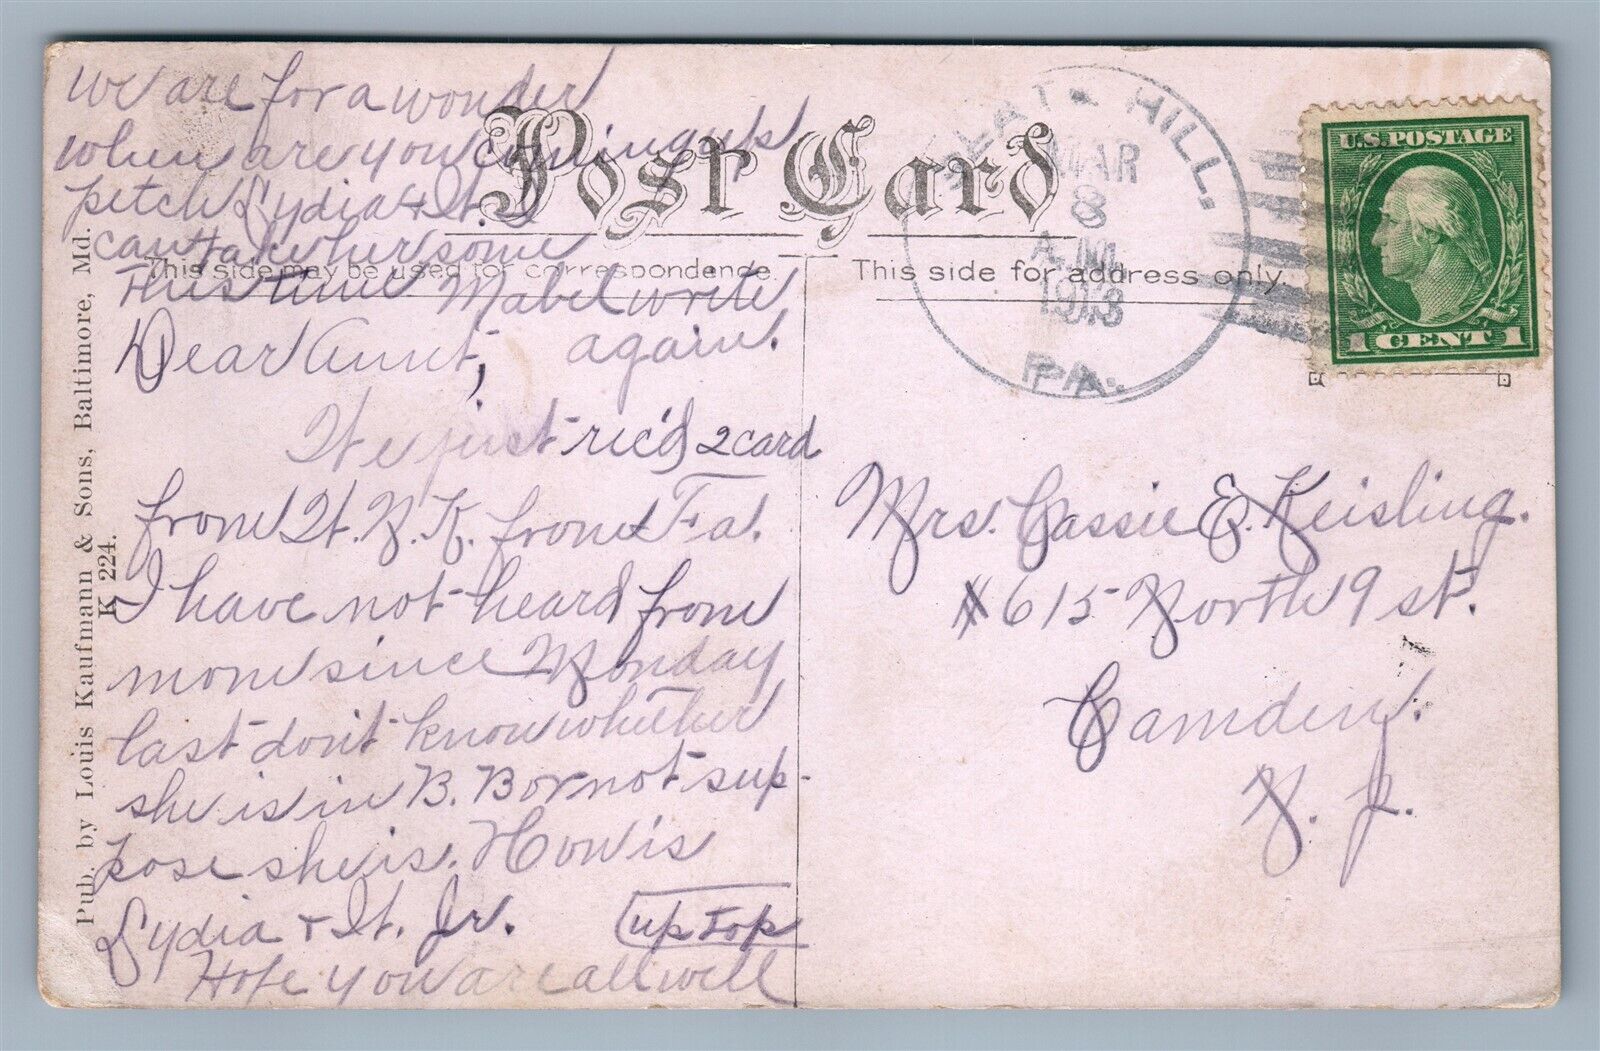 we are for a wonder
when are you coming up
fetch Lydia & H.
can take her some
This time Mabel write
again.
Post Card
This side may be used for correspondence.
This side for address only.
SLATE HILL.
MAR
8
A.M.
1913
PA.
U.S. POSTAGE
1 CENT 1
Dear Aunt,
We just rec'd 2 card
from H. N. K. from Fa.
I have not heard from
mom since Monday
last don't know whether
she is in B. B or not sup-
pose she is. How is
Lydia & H. Jr.
up top
Hope you are all well
Mrs. Cassie E. Keisling.
# 615 North 9 st.
Camden.
N. J.
Pub. by Louis Kaufmann & Sons, Baltimore, Md.
K 224.